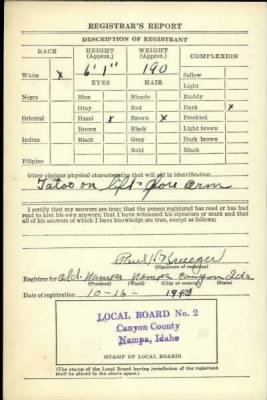 REGISTRAR'S REPORT
DESCRIPTION OF REGISTRANT
RACE HEIGHT (Approx.) WEIGHT (Approx.) COMPLEXION
White x 6' 1" 190 Sallow
EYES HAIR Light
Negro Blue Blonde Ruddy
Gray Red Dark x
Oriental Hazel x Brown x Freckled
Brown Black Light brown
Indian Black Gray Dark brown
Bald Black
Filipino
Other obvious physical characteristics that will aid in identification
Tatoo on left - fore arm
I certify that my answers are true; that the person registered has read or has had
read to him his own answers; that I have witnessed his signature or mark and that
all of his answers of which I have knowledge are true, except as follows:
Krueger
(Signature of registrar)
Registrar for Old Nampa Nampa Canyon Ida
(Precinct) (Ward) (City or county) (State)
Date of registration 10-16- 1940
LOCAL BOARD No. 2
Canyon County
Nampa, Idaho
(STAMP OF LOCAL BOARD)
(The stamp of the Local Board having jurisdiction of the registrant
shall be placed in the above space.)